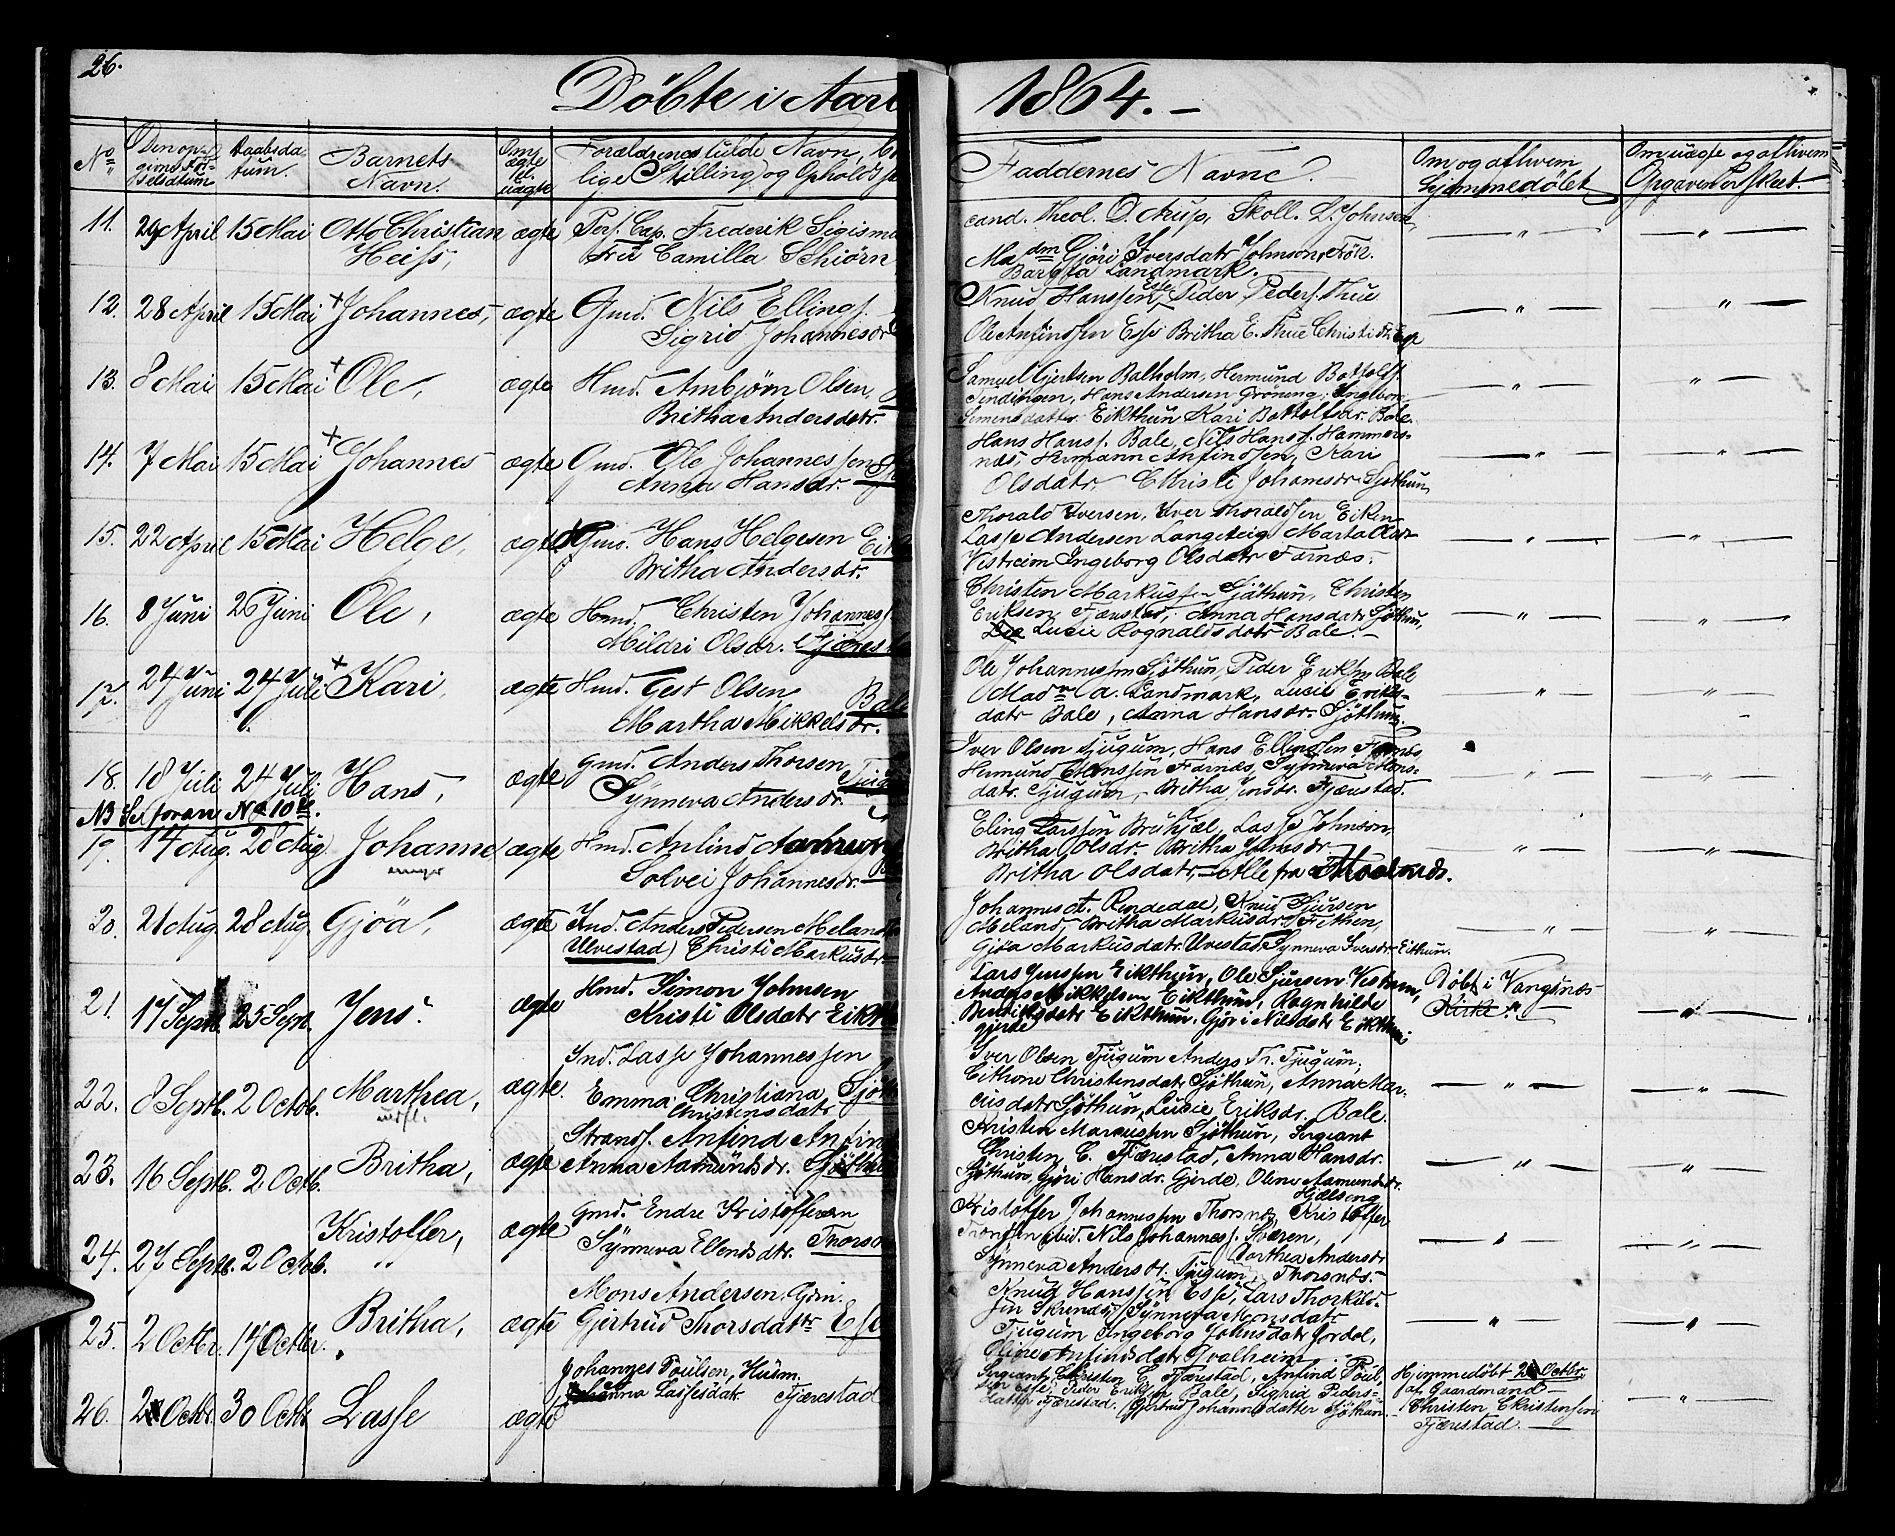 26.
Döbte i Aare 1864. –
No
Den opgivne Födselsdatum
Daabsdatum.
Barnets Navn.
Om ægte el. uægte
Forældrenes fulde Navn,
lige Stilling og Opholds
Faddernes Navne.
Om og af hvem hjemmedöbt
Om uægte og af hvem Opgaven er skeet.
11. 29 April 15 Mai Otto Christian Heiss, ægte
Frederik Sigism
Fru Camilla Schiörn
cand. Theol. D. Arup, Skoll. L. Johnsen,
Madm Gjöri Iversdatr Johnson, Frök.
Landmark.
12. 28 April 15 Mai + Johannes, ægte
Gmd. Nils Ellings.
Sigrid Johannesdr
Knud Hanssen Esse, Peder Peders. Thue
Ole Anfindsen Esse Britha E. Thue Christi
13. 8 Mai 15 Mai + Ole, ægte
Hmd. Ambjörn Olsen,
Britha Andersdatr.
Samuel Gjertsen Balholm, Hermund Bottolfs.
Hans Andersen Gröneng, Ingeborg
Simensdatter Eikthun Kari Bottolfsdr. Bale.
14. 7 Mai 15 Mai + Johannes ægte
Gmd. Ole Johannessen
Anna Hansdr.
Hans Hanss. Bale, Nils Hanss. Hammers-
næs, Hermann Anfindsen, Kari
Olsdatr. Christi Johannesdr. Sjöthun,
15. 22 April 15 Mai Helge, ægte
Gmd. Hans Helgesen Eik
Britha Andersdr.
Thorald Iversen, Iver Thoraldsen Eiken
Lasse Andersen Langeteig, Marta
Vestreim Ingeborg Olsdatr Farnæs.
16. 8 Juni 26 Juni Ole, ægte
Hmd. Christen Johannes
Mildri Olsdr.
Christen Markussen Sjöthun, Christen
Eriksen Fjærestad, Anna Hansdatr Sjöthun,
Lucie Rognaldsdatr Bale. –
17. 24 Juni 24 Juli + Kari, ægte
Hmd. Test Olsen Bale
Martha Mikkelsdr.
Ole Johannessen Sjöthun, Peder Eriksen Bale
Madm A. Landmark, Lucie Eriks-
datr Bale, Anna Hansdr. Sjöthun.
18. 18 Juli 24 Juli Hans, ægte
Gmd. Anders Thorsen
Synneva Andersdr.
Iver Olsen Tjugum, Hans Ellingsen Farnæs
Hermund Hanssen Farnæs, Synneva
datr. Tjugum, Britha Jensdr. Fjærestad.
NB Se foran No 10
19. 14 Aug. 28 Aug Johanne ægte
Hmd. Anfind
Solvei Johannesdr.
Eling Larssen Lasse Johnson,
Britha Olsdr. Britha
Britha Olsdatr, Alle fra
20. 21 Aug 28 Aug Gjöa, ægte
Ind. Anders Pedersen Meland
Ulvestad) Christi Markusdr.
Johannes A. Rendedal, Knud Sjursen
Meland, Britha Markusdr.
Gjöa Markusdatr. Ulvestad Synneva Iversdr Eithun.
21. 17 Septb 25 Sept Jens. ægte
Hmd. Simon Johnsen
Kristi Olsdatr Eikth
Lars Jenssen Eikthun, Ole Sjursen Vestreim,
Anders Mikkelsen Eikthun, Ragnhilde
Bendiksdatr Eikthun. Gjöri Nilsdatr Eikthun
gjerde
Döbt i Vangsnæs
Kirke.
22. 8 Septb. 2 Octob. Marthea, ægte.
Ind. Lasse Johannessen
Emma Christiana Sjöt
Christensdatr
Iver Olsen Tjugum Anders Th. Tjugum,
Christensdatr Sjöthun, Anna Mar-
cusdatr Sjöthun, Lucie Eriksdr. Bale.
23. 16 Septb. 2 Octb. Britha, ægte
Strands. Anfind Anfin
Anna Aamundsdr. Sjöthun
Kristen Marcussen Sjöthun, Sergeant
Christen C. Fjærestad, Anna Hansdr.
Sjöthun, Gjöri Hansdr. Gjerde, Oline Aamundsdr.
Hjelseng
24. 27 Septb. 2 Octob. Kristoffer, ægte
Gmd. Endre Kristoffersen
Synneva Ellendsdtr. Thors
Kristoffer Johannessen Thorsnæs, Kristoffer
ibid. Nils Johanness. Sværen,
Synneva Andersdr. Tjugum, Dorthea Andersdr
Thorsnæs.
25. 2 Octbr. 14 Octbr. Britha, ægte
Mons Andersen,
Gjertrud Thorsdatr Ess
Knud Hanssen Esse, Lars Thorkild-
sen Synneva Monsdatr
Tjugum Ingeborg Johnsdatr Jordal,
Oline Anfindsdatr Tvalheim
26. Octbr. 30 Octb. Lasse ægte
Johannes Poulsen, Husm.
Johanna Lassesdatr. Fjærestad
Sergeant Christen C. Fjærestad, Anfind Poul-
sen Esse, Peder Eriksen Bale, Sigrid Peders-
datter Fjærestad. Gjertrud Johannesdatter Sjöthun.
Hjemmedöbt Octbr.
af Gaardmand
Christen Christensen
Fjærestad.